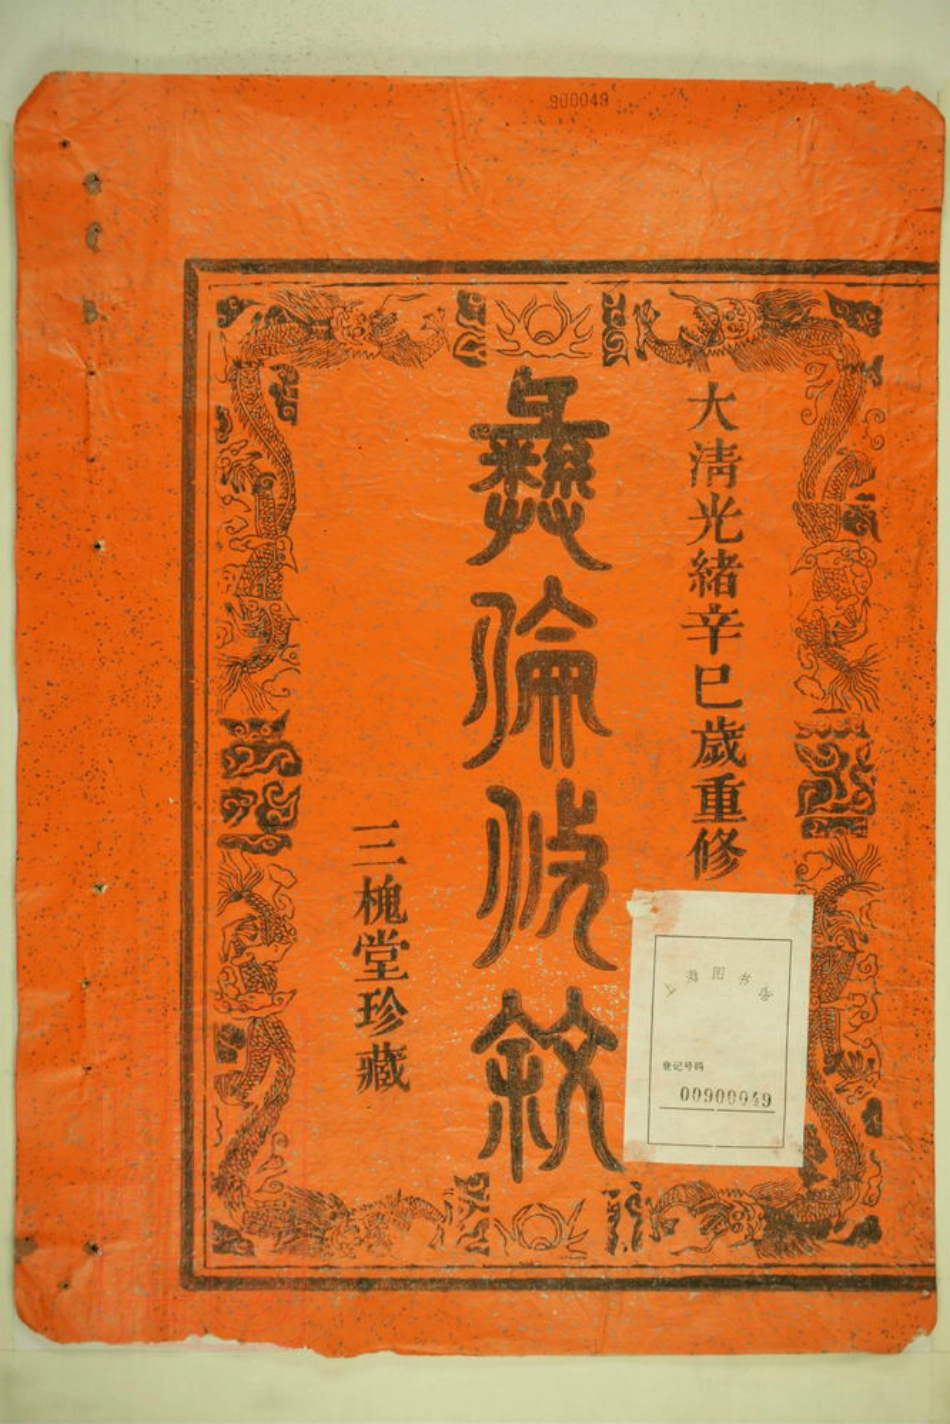 900049
大清光緒辛巳歲重修
彝倫攸敘
三槐堂珍藏
上海图书馆
登记号码
00900049